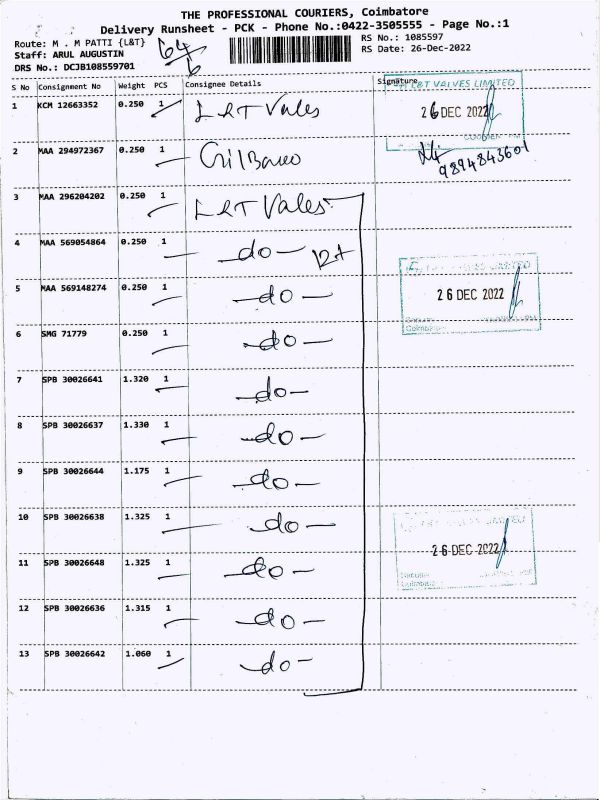 THE PROFESSIONAL COURIERS, Coimbatore
Delivery Runsheet - PCK - Phone No.:0422-3505555 - Page No.:1
Route: M . M PATTI {L&T} RS No.: 1085597
Staff: ARUL AUGUSTIN RS Date: 26-Dec-2022
DRS No.: DCJB108559701
64/6
S No Consignment No Weight PCS Consignee Details Signature
1 KCM 12663352 0.250 1 L&T Vales
L&T VALVES LIMITED
26 DEC 2022
2 MAA 294972367 0.250 1
9894843601
3 MAA 296204202 0.250 1 L&T Vales
4 MAA 569054864 0.250 1 -do-
5 MAA 569148274 0.250 1 -do-
26 DEC 2022
6 SMG 71779 0.250 1 -do-
7 SPB 30026641 1.320 1 -do-
8 SPB 30026637 1.330 1 -do-
9 SPB 30026644 1.175 1 -do-
10 SPB 30026638 1.325 1 -do-
26 DEC 2022
11 SPB 30026648 1.325 1 -do-
12 SPB 30026636 1.315 1 -do-
13 SPB 30026642 1.060 1 -do-